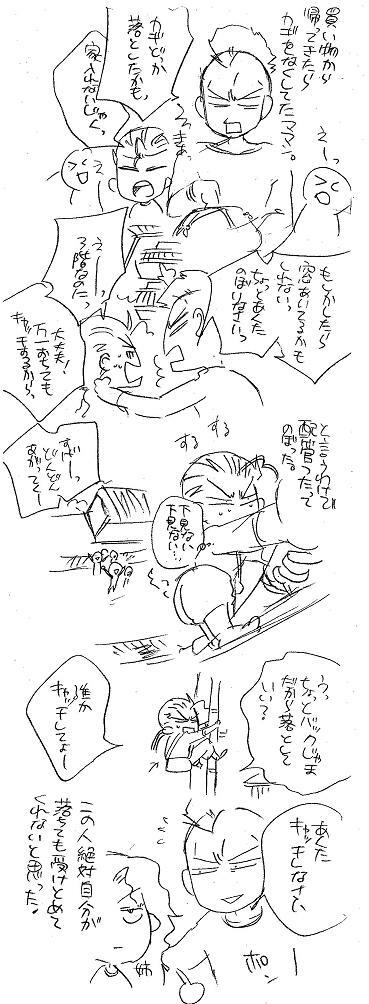 買い物から
帰ってきたら
カギをなくしてたママン。
カギどっか
落としたかも、
家入れないじゃん、
えーっ
えーっ
もしかしたら
窓あいてるかも
しれないっ
ちょっとあくた
のぼりなさいっ
えーっ
3階なのだっ
大丈夫！
万一おちても
キャッチするから、
と言うわけで
配管つたって
のぼった。
する
する
すげーっ
どんどん
あがってくー
下見ない
下見ない…!
うっ
ちょっとバックじゃま
だから落として
いい？
誰か
キャッチしてよー
あくた
キャッチしなさい、
ポーン
姉
この人絶対自分が
落ちても受けとめて
くれないと思った。